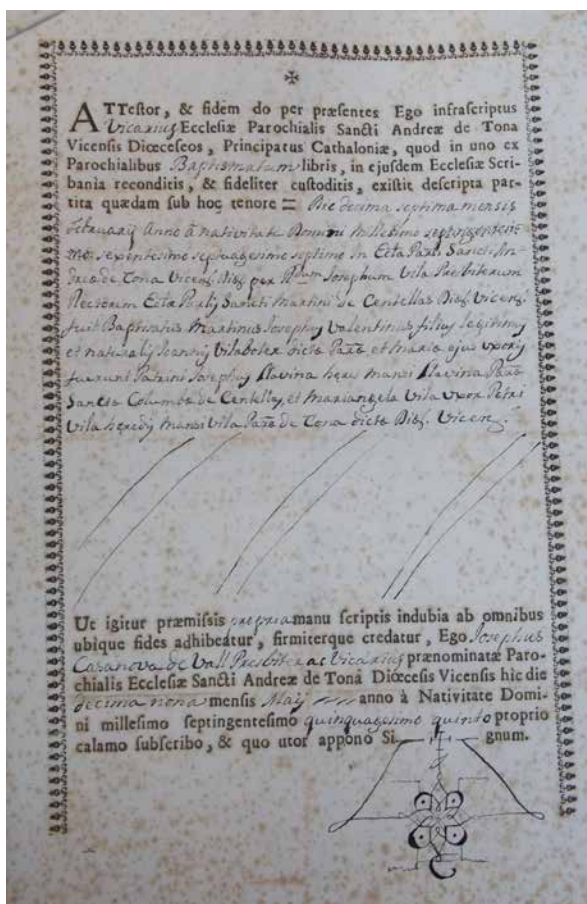 ✠
ATTestor, & fidem do per præsentes Ego infrascriptus
Vicarius Ecclesiæ Parochialis Sancti Andreæ de Tona
Vicensis Diœceseos, Principatus Cathaloniæ, quod in uno ex
Parochialibus Baptismatum libris, in ejusdem Ecclesiæ Scri-
bania reconditis, & fideliter custoditis, existit descripta par-
tita quædam sub hoc tenore = Die decima septima mensis
Februarij Anno â nativitate Domini Millesimo
septimo in Ectā Parlī Sancti An-
dreæ de Tona Vicens. Diss. per Rdum Josephum Vila Presbiterum
Rectorem Ectæ Parlis Sancti Martini de Centellas Diss. Vicens.
fuit Baptisatus Martinus Josephus Valentinus filius legitimus
et naturalis Joannis dictæ Paræ et Mariæ ejus uxoris
fuerunt Patrini Josephus Llavina heres mansi Llavina Paræ
Sanctæ Columbæ de Centellas, et Mariangela Vila uxor Petri
Vila heredis mansi Vila Paræ de Tona dictæ Diss. Vicens.
Ut igitur præmissis propria manu scriptis indubia ab omnibus
ubique fides adhibeátur, firmiterque credatur, Ego Josephus
Casanova de Vall Presbiter ac Vicarius prænominatæ Paro-
chialis Ecclesiæ Sancti Andreæ de Tona Diœcesis Vicensis hic die
decima nona mensis Maij anno à Nativitate Domi-
ni millesimo septingentesimo quinquagesimo quinto proprio
calamo subscribo, & quo utor appono Si gnum.